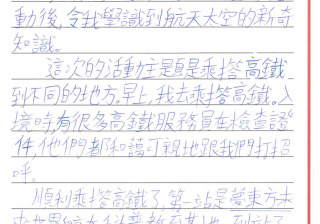 動後,令我學識到航天太空的新奇
知識。
這次的活動主是是乘搭高鐵
到不同的地方。早上,我去乘搭高鐵。入
境時有很多高鐵服務員在檢查證
件他們都和藹可親地跟我們打招
呼。
順利乘搭高鐵了,第一站是夢東方未
來世界